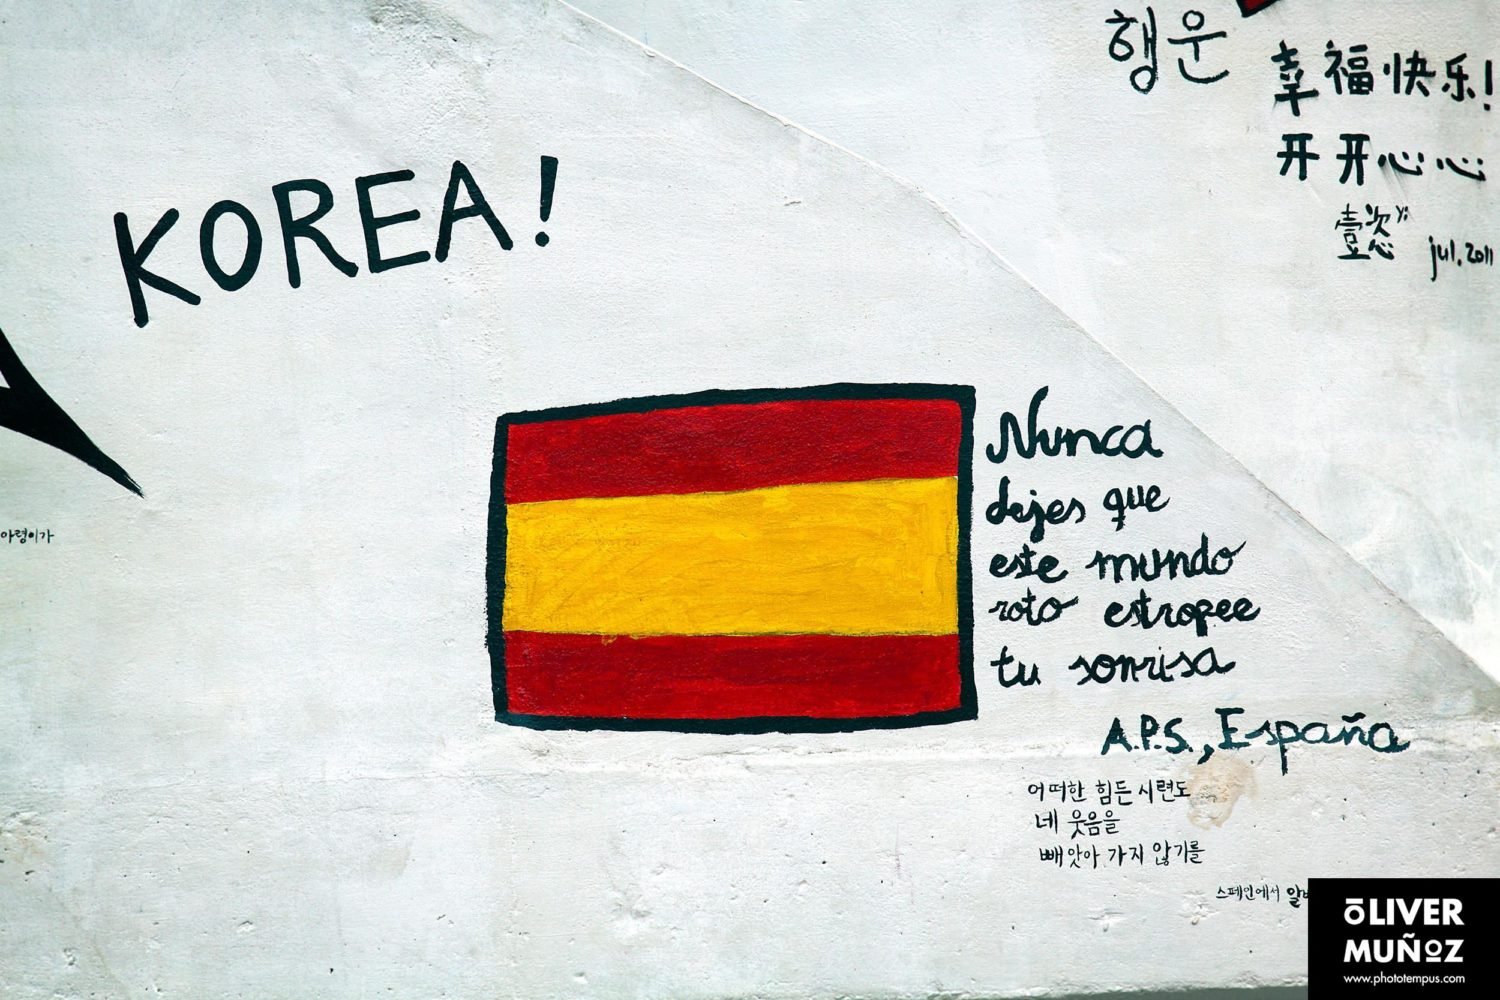 행운
幸福快乐!
开开心心
壹恣 Yi
jul. 2011
KOREA!
Nunca
dejes que
este mundo
roto estropee
tu sonrisa
A.P.S., España
아령이가
어떠한 힘든 시련도
네 웃음을
빼앗아 가지 않기를
스페인에서
ōLIVER
MUÑoZ
www.phototempus.com